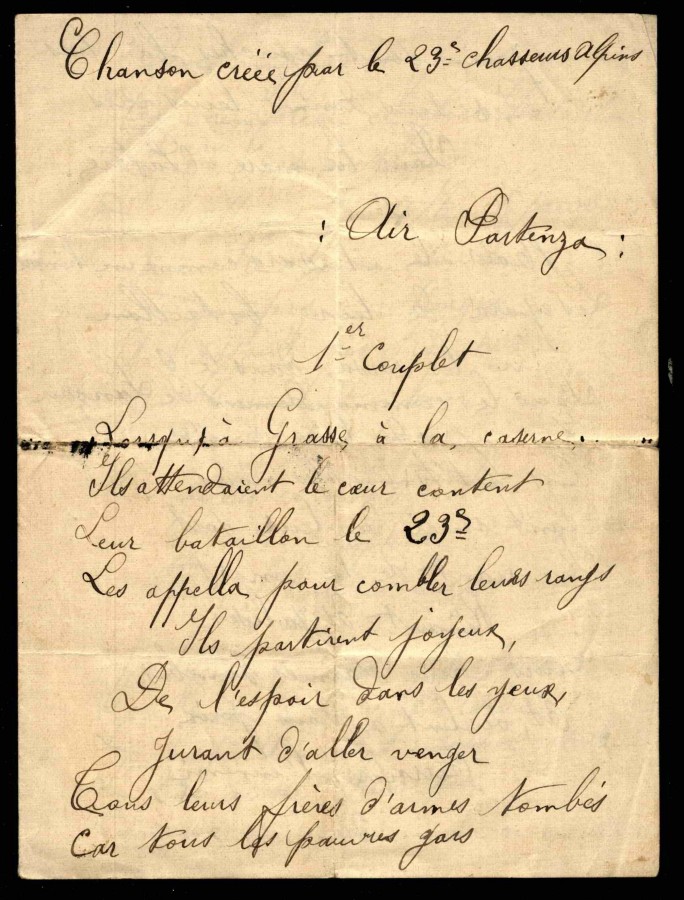 Chanson créée par le 23e chasseurs alpins
: Air Partenza :
1er Couplet
Lorsqu'à Grasse, à la caserne,
Ils attendaient le cœur content
Leur bataillon le 23e
Les appella pour combler leurs rangs
Ils partirent joyeux,
De l'espoir dans les yeux,
Jurant d'aller venger
Tous leurs frères d'armes tombés
Car tous les pauvres gars